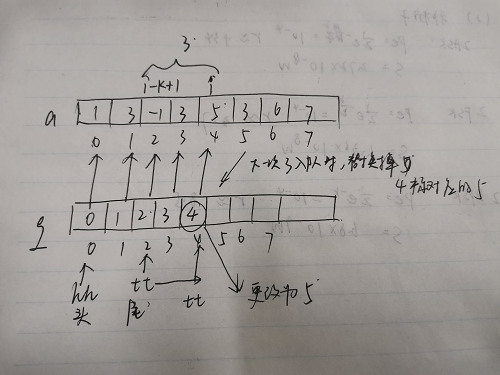 3.
i-k+1 i
a 1 3 -1 3 5 3 6 7
0 1 2 3 4 5 6 7
大一次3入队时,替换掉
4标对应的5
q 0 1 2 3 4
0 1 2 3 4 5 6 7
hh tt tt 更改为5
头 尾